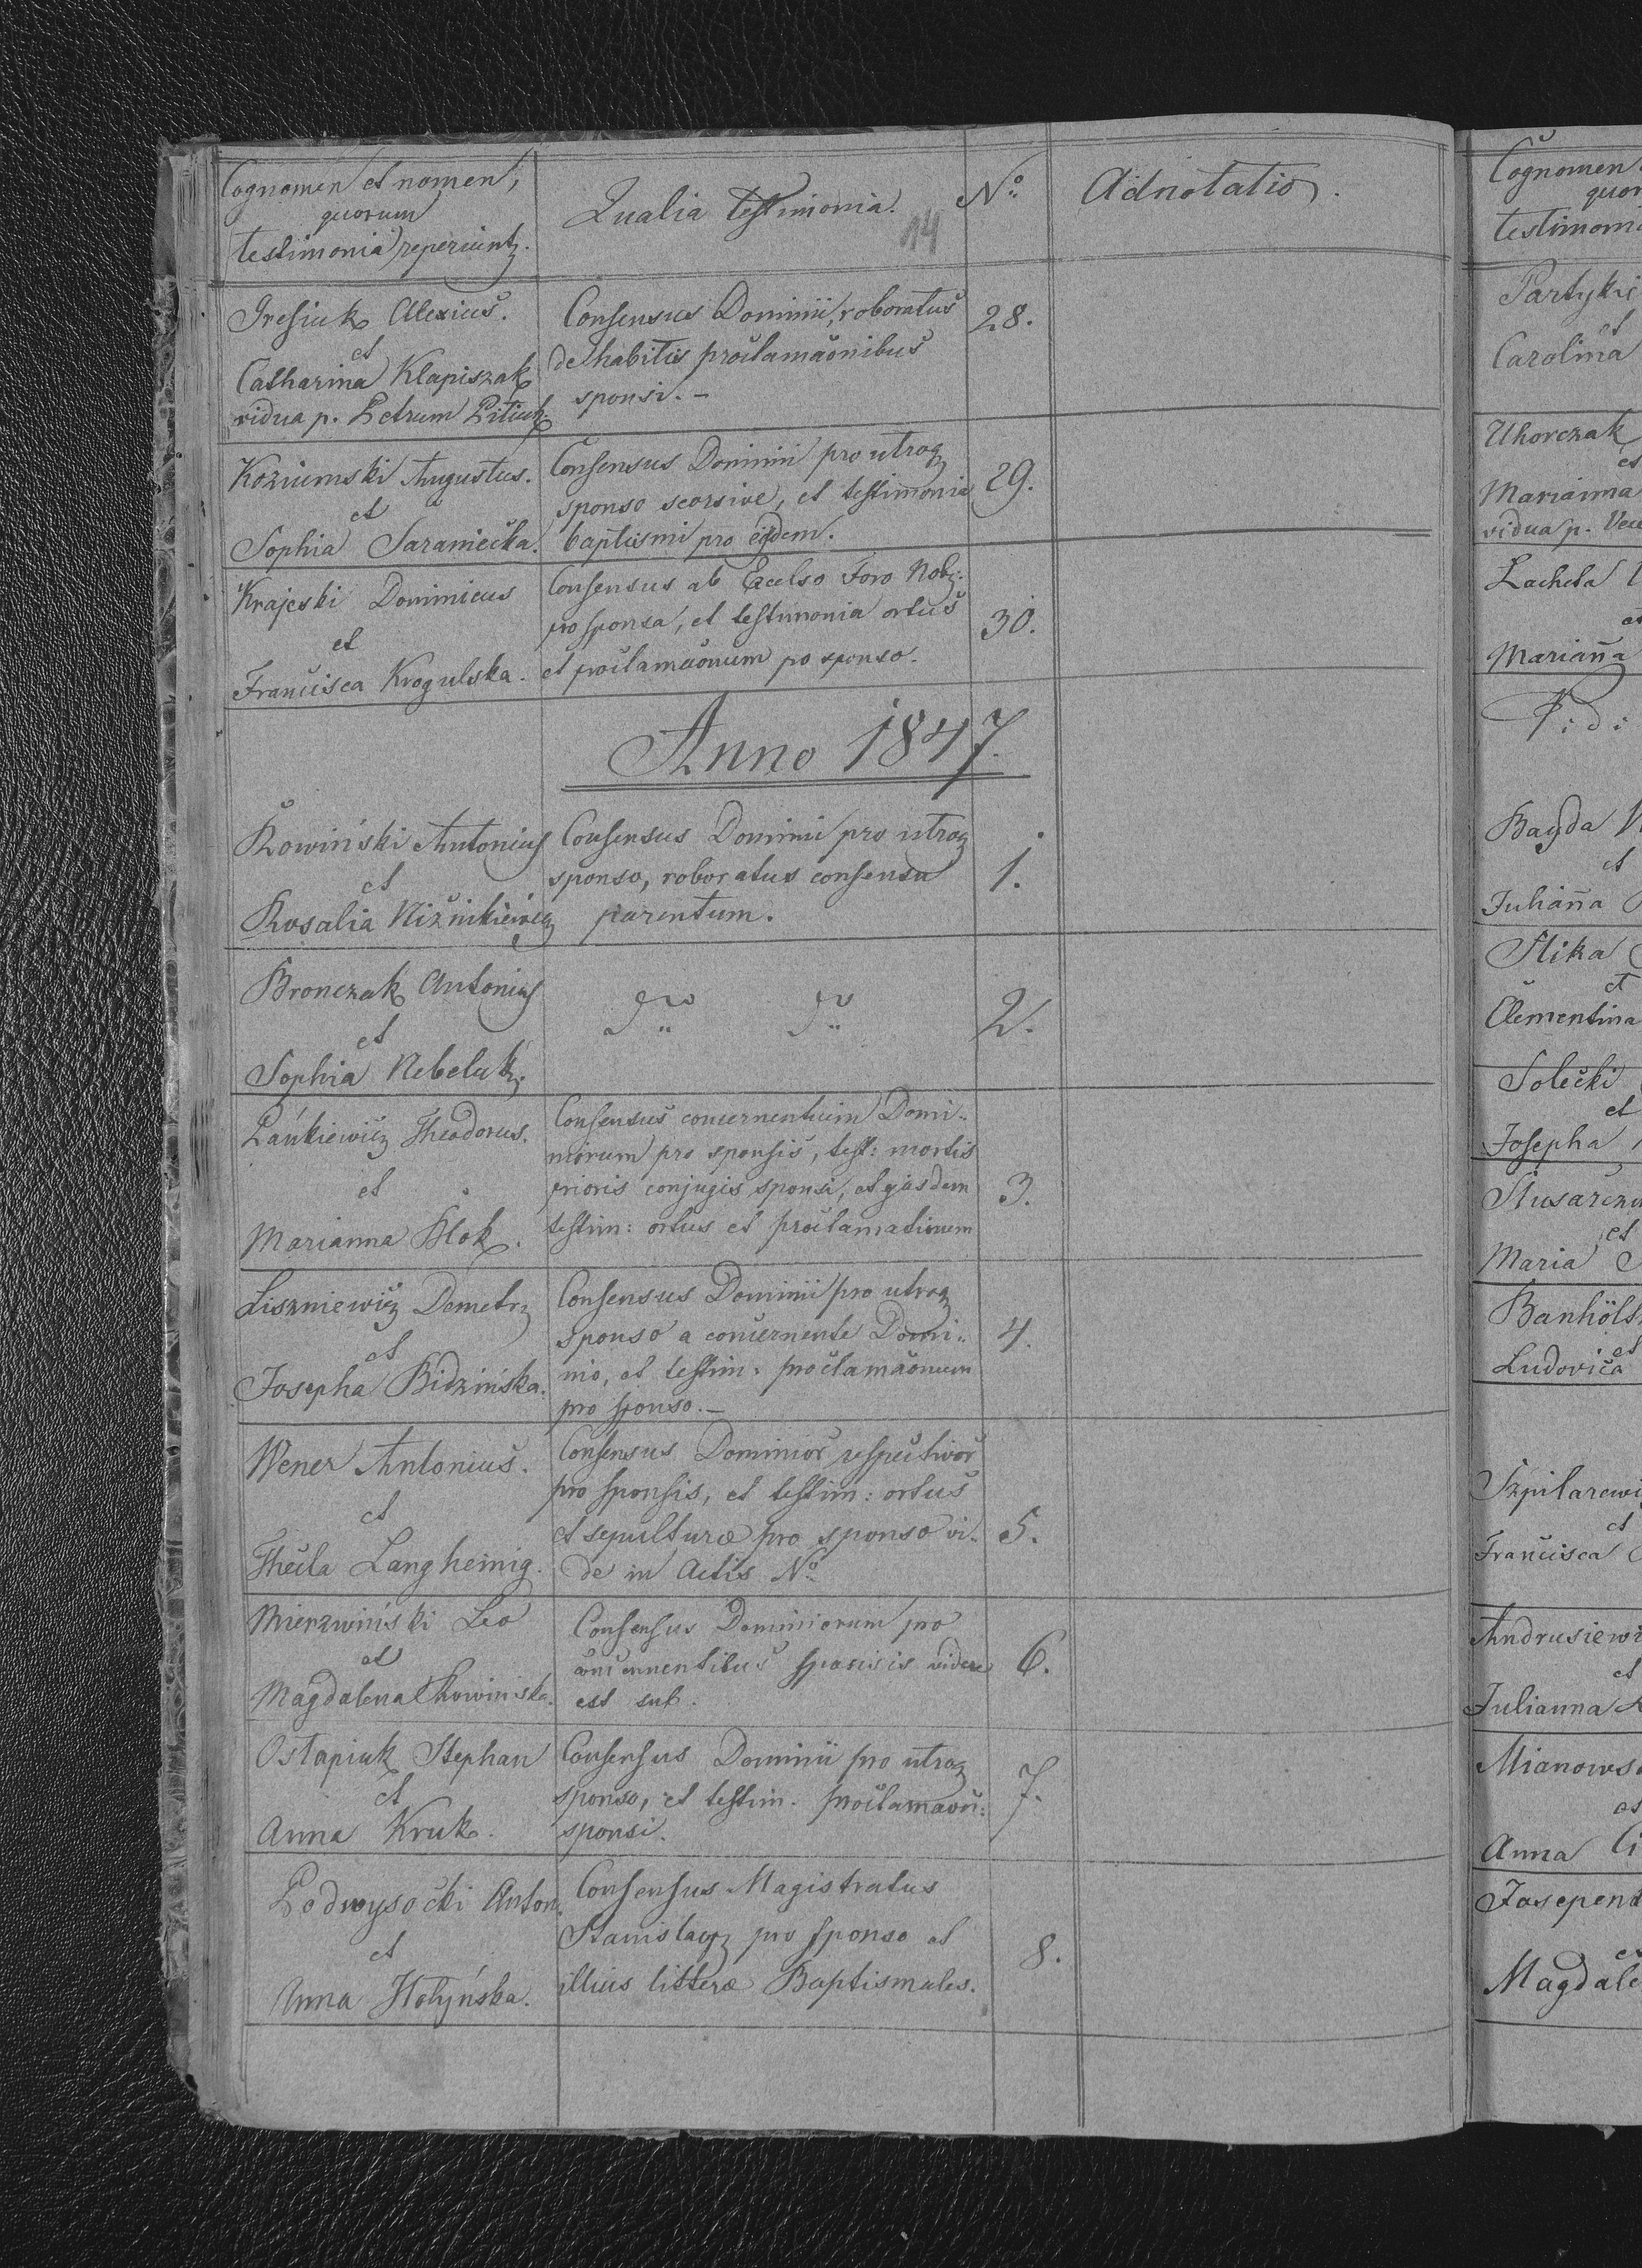 Cognomen et nomen,
quorum
testimonia reperiuntz.
Qualia testimonia.
14
No
Adnotatio.
Hresiuk Alexius.
et
Catharina Klapiszak
vidua p. Petrum Pitiuk.
Consensus Dominii, roboratus
de habitis proclamaonibus
sponsi. -
28.
Koziemski Augustus.
et
Sophia Saraniecka.
Consensus Dominii pro utroqz
sponso seorsive, et testimonia
baptismi pro eisdem.
29.
Krajeski Dominicus
et
Francisca Krogulska.
Consensus ab Excelso Foro Nob:
pro sponsa, et testimonia ortus
et proclamaonum po sponso.
30.
Anno 1847.
Rowiński Antonius
et
Rosalia Niżnikiewicz
Consensus Dominii pro utroqz
sponso, roboratus consensu
parentum.
1.
Bronczak Antonius
et
Sophia Nebeluk.
2.
Pańkiewicz Theodorus.
et
Marianna Blok.
Consensus concernentium Domi-
niorum pro sponsis, test: mortis
prioris conjugis sponsi, et ejusdem
testim: ortus et proclamationum
3.
Liszniewicz Demetrz
et
Josepha Bidzińska.
Consensus Dominii pro utroqz
sponso a concernente Domi-
nio, et testim: proclamaonum
pro sponso. -
4.
Wener Antonius.
et
Thecla Langheinig.
Consensus Dominior respectivor
pro sponsis, et testim: ortus
et sepulturæ pro sponso vi-
de in Actis No
5.
Mierzwiński Leo
et
Magdalena Rowinska.
Consensus Dominiorum pro
concernentibus sponsis videre
est sub.
6.
Ostapiuk Stephan
et
Anna Kruk.
Consensus Dominii pro utroqz
sponso, et testim. proclamaon:
sponsi.
7.
Podwysocki Anton.
et
Anna Hołyńska.
Consensus Magistratus
pro sponso et
illius litteræ Baptismales.
8.
Cognomen
quor
testimoni
Partykie
et
Carolina
Uhorczak
et
Marianna
vidua p.
Lacheta
et
Marianna
Bayda
et
Julianna
Slika
et
Clementina
Solecki
et
Josepha
Slusarczu
et
Maria
Banhöls
et
Ludovica
Szpilarewi
et
Francisca
Andrusiewi
et
Julianna
Mianows
et
Anna
et
Magdale